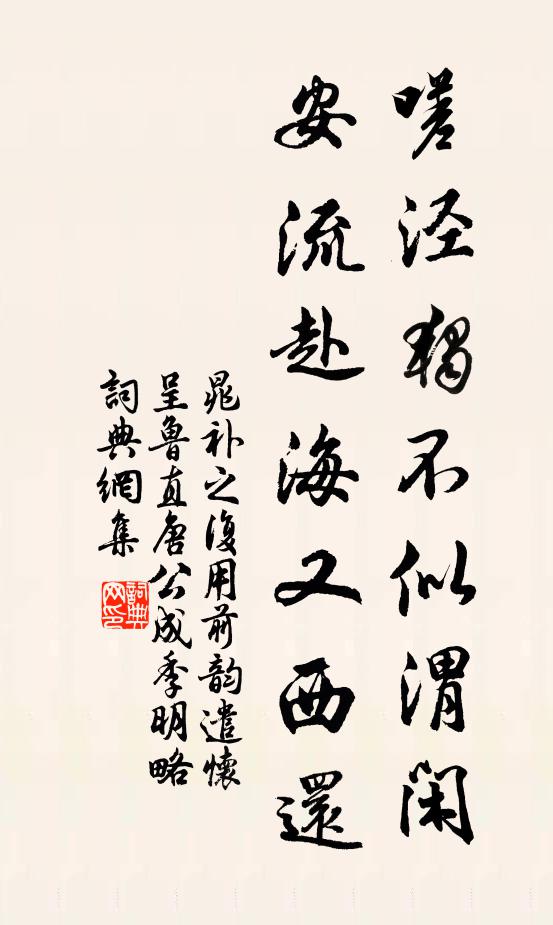 嗟泾獨不似渭闲
安流赴海又西還
晁补之復用前韵遣懷
呈魯直唐公成季明略
詞典網集
詞典网印